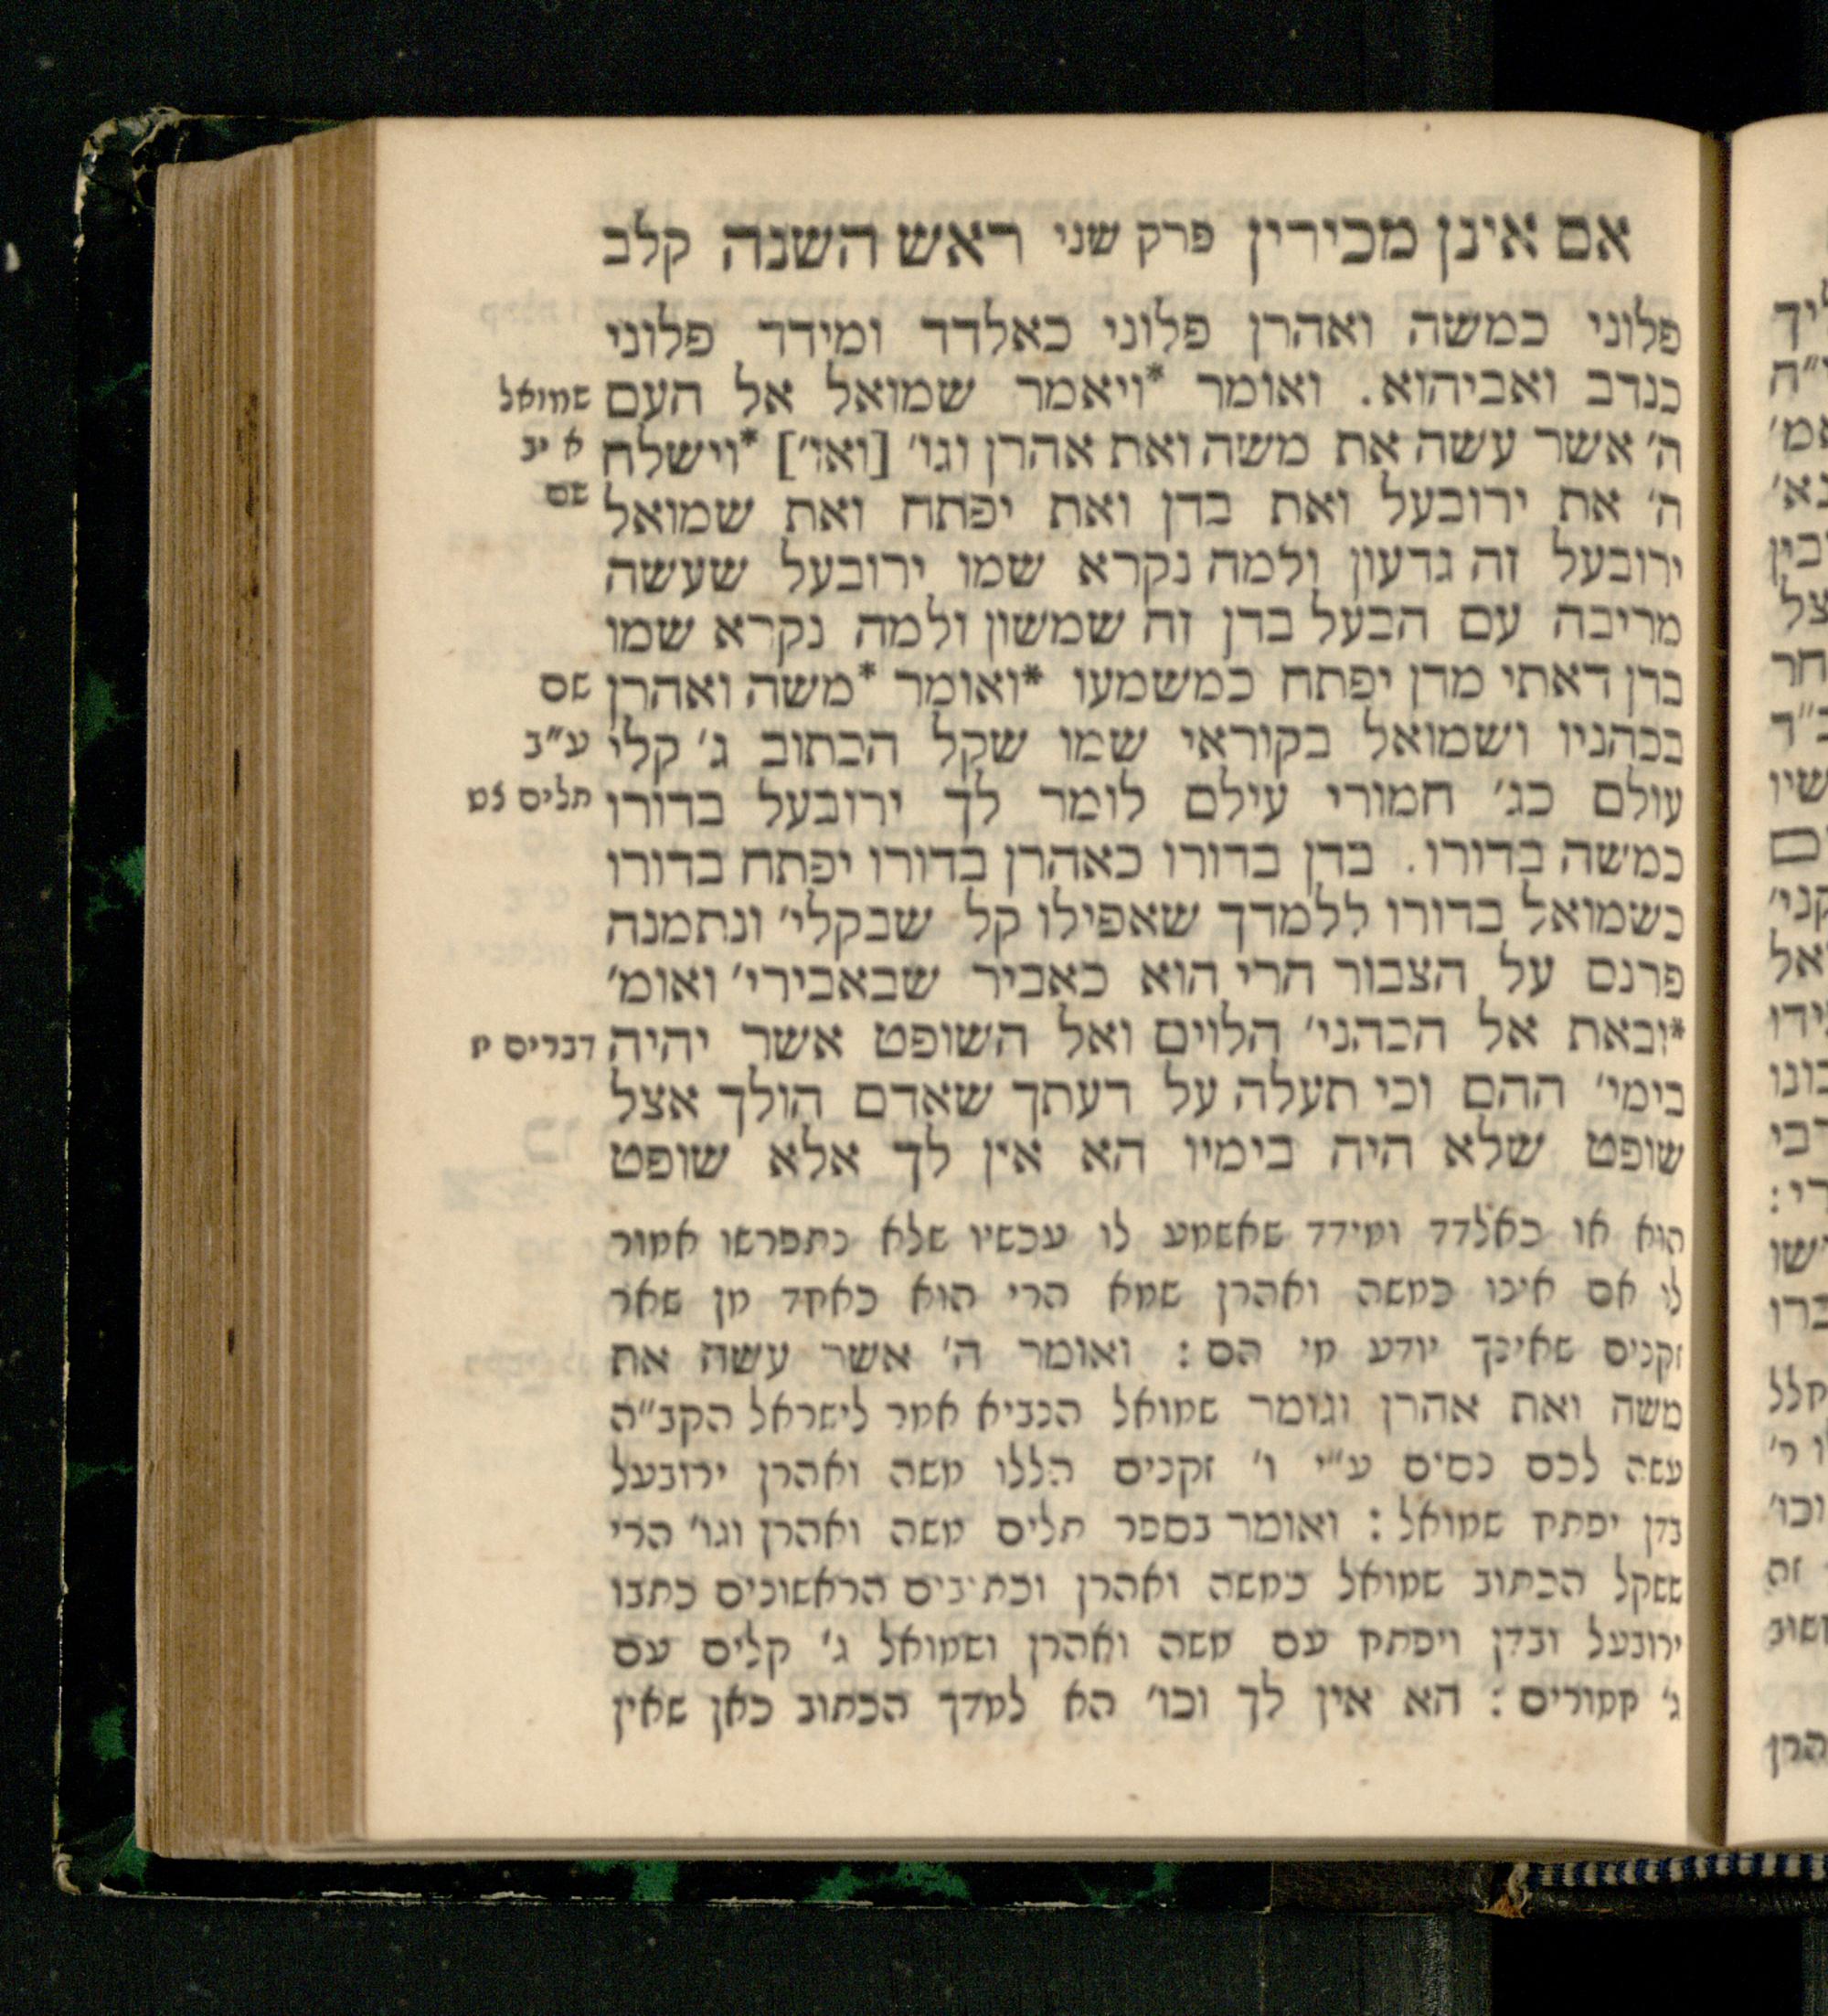 אם אינן מכירין פרק שני ראש השנה קלב
פלוני כמשה ואהרן פלוני כאלדד ומידד פלוני
כנדב ואביהוא. ואומר *ויאמר שמואל אל העם
שמואל
ה׳ אשר עשה את משה ואת אהרן וגו׳ [ואו׳] *וישלח
א יב
ה׳ את ירובעל ואת בדן ואת יפתח ואת שמואל
שם
ירובעל זה גדעון ולמה נקרא שמו ירובעל שעשה
מריבה עם הבעל בדן זה שמשון ולמה נקרא שמו
בדן דאתי מדן יפתח כמשמעו *ואומר *משה ואהרן
שם
בכהניו ושמואל בקוראי שמו שקל הכתוב ג׳ קלי
ע״ב
עולם כג׳ חמורי עילם לומר לך ירובעל בדורו
תלים צט
כמשה בדורו. בדן בדורו כאהרן בדורו יפתח בדורו
כשמואל בדורו ללמדך שאפילו קל שבקלי׳ ונתמנה
פרנס על הצבור הרי הוא כאביר שבאבירי׳ ואומ׳
*ובאת אל הכהני׳ הלוים ואל השופט אשר יהיה
דברים יז
בימי׳ ההם וכי תעלה על דעתך שאדם הולך אצל
שופט שלא היה בימיו הא אין לך אלא שופט
הוא או כאלדד ומידד שאשמע לו עכשיו שלא נתפרשו אמור
לו אם אינו כמשה ואהרן שמא הרי הוא כאחד מן שאר
זקנים שאינך יודע מי הם : ואומר ה׳ אשר עשה את
משה ואת אהרן וגומר שמואל הנביא אמר לישראל הקב״ה
עשה לכם נסים ע״י ו׳ זקנים הללו משה ואהרן ירובעל
בדן יפתח שמואל : ואומר בספר תלים משה ואהרן וגו׳ הרי
ששקל הכתוב שמואל כמשה ואהרן וכתובים הראשונים כתבו
ירובעל ובדן ויפתח עם משה ואהרן ושמואל ג׳ קלים עם
ג׳ חמורים : הא אין לך וכו׳ הא למדך הכתוב כאן שאין